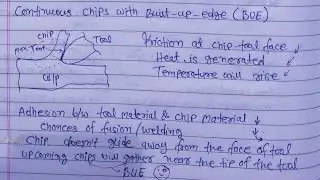 Continuous chips with Built-up-edge (BUE)
chip
Tool
Friction at chip-tool face
Heat is generated
Temperature will rise
W/P
Adhesion b/w tool material & chip material
Chances of fusion/welding
Chip doesn't glide away from the face of tool
upcoming chips will gather near the tip of the tool
BUE